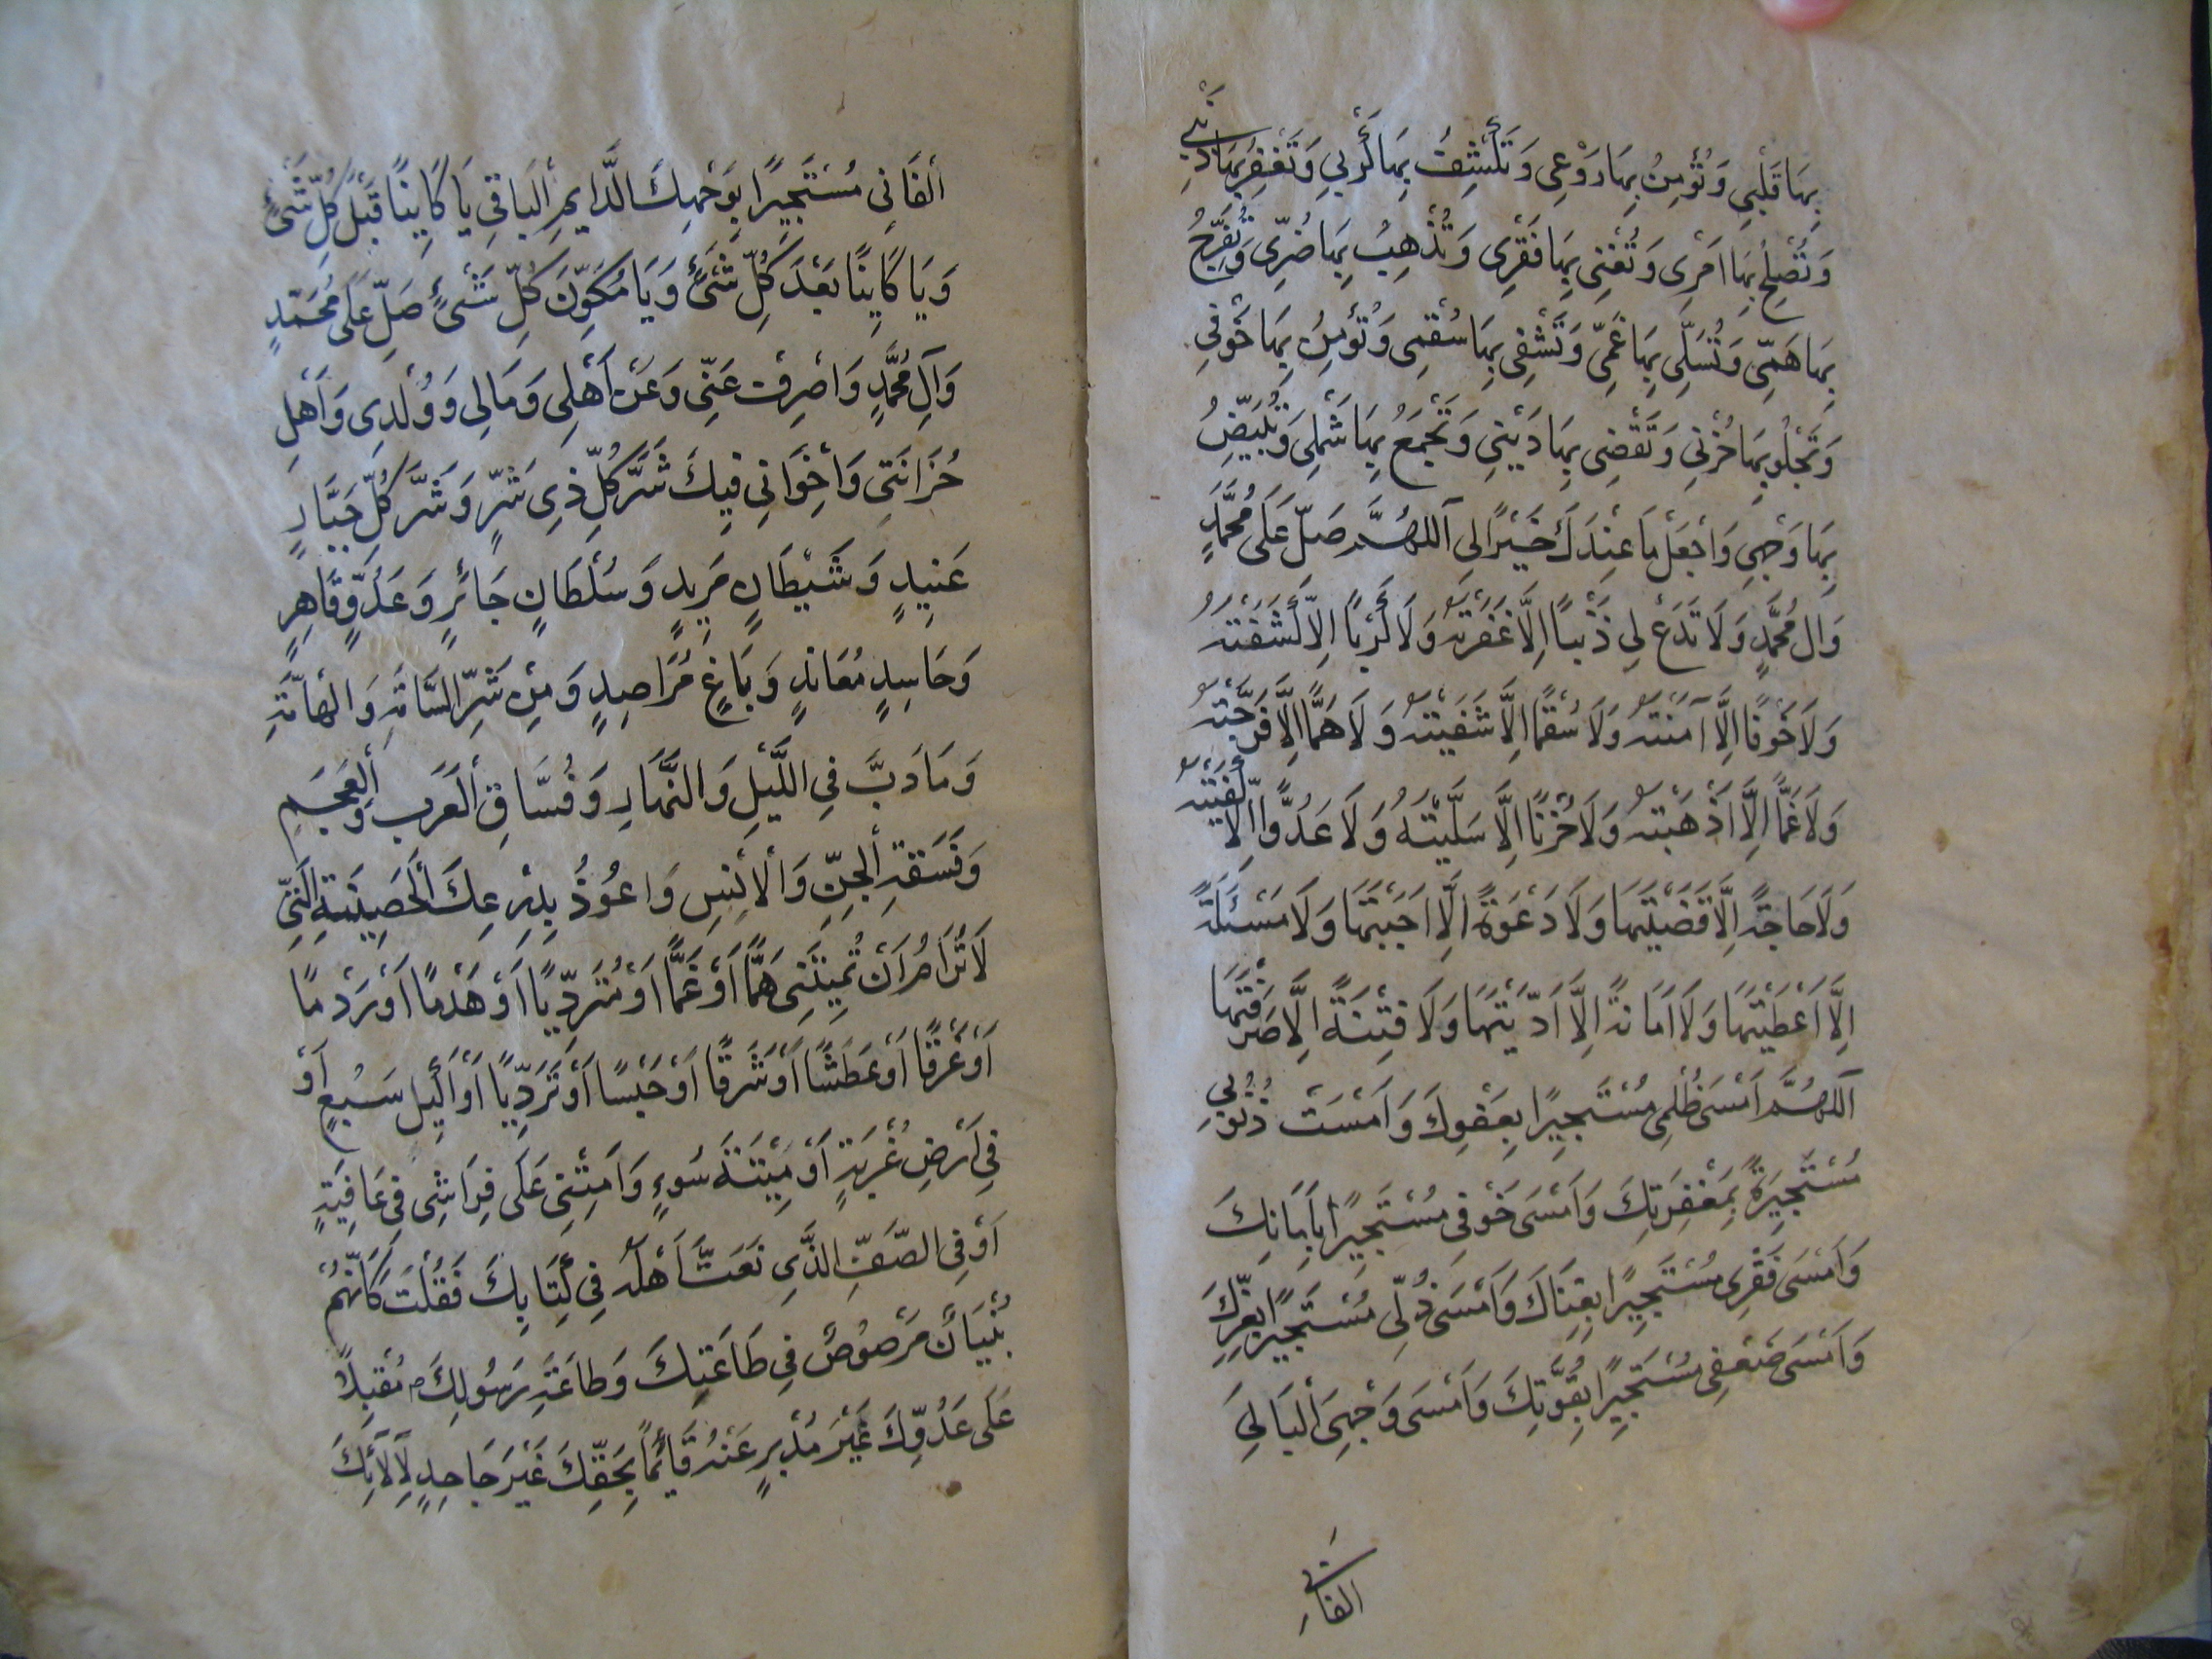 بِهَا قَلْبِي وَتُؤْمِنُ بِهَا رَوْعِي وَتَكْشِفُ بِهَا كَرْبِي وَتَغْفِرُ بِهَا ذَنْبِي
وَتُصْلِحُ بِهَا اَمْرِي وَتُغْنِي بِهَا فَقْرِي وَتُذْهِبُ بِهَا ضُرِّي وَتُفَرِّجُ
بِهَا هَمِّي وَتُسَلِّي بِهَا غَمِّي وَتَشْفِي بِهَا سُقْمِي وَتُؤْمِنُ بِهَا خَوْفِي
وَتَجْلُو بِهَا حُزْنِي وَتَقْضِي بِهَا دَيْنِي وَتَجْمَعُ بِهَا شَمْلِي وَتُبَيِّضُ
بِهَا وَجْهِي وَاجْعَلْ مَا عِنْدَكَ خَيْرًا لِي اَللّٰهُمَّ صَلِّ عَلَى مُحَمَّدٍ
وَالِ مُحَمَّدٍ وَلَا تَدَعْ لِي ذَنْبًا اِلَّا غَفَرْتَهُ وَلَا كَرْبًا اِلَّا كَشَفْتَهُ
وَلَا خَوْفًا اِلَّا آمَنْتَهُ وَلَا سُقْمًا اِلَّا شَفَيْتَهُ وَلَا هَمًّا اِلَّا فَرَّجْتَهُ
وَلَا غَمًّا اِلَّا اَذْهَبْتَهُ وَلَا حُزْنًا اِلَّا سَلَّيْتَهُ وَلَا عَدُوًّا اِلَّا كَفَيْتَهُ
وَلَا حَاجَةً اِلَّا قَضَيْتَهَا وَلَا دَعْوَةً اِلَّا اَجَبْتَهَا وَلَا مَسْئَلَةً
اِلَّا اَعْطَيْتَهَا وَلَا اَمَانَةً اِلَّا اَدَّيْتَهَا وَلَا فِتْنَةً اِلَّا صَرَفْتَهَا
اَللّٰهُمَّ اَمْسَى ظُلْمِي مُسْتَجِيرًا بِعَفْوِكَ وَاَمْسَتْ ذُنُوبِي
مُسْتَجِيرَةً بِمَغْفِرَتِكَ وَاَمْسَى خَوْفِي مُسْتَجِيرًا بِاَمَانِكَ
وَاَمْسَى فَقْرِي مُسْتَجِيرًا بِغِنَاكَ وَاَمْسَى ذُلِّي مُسْتَجِيرًا بِعِزِّكَ
وَاَمْسَى ضَعْفِي مُسْتَجِيرًا بِقُوَّتِكَ وَاَمْسَى وَجْهِيَ الْبَالِي
الفَانِي
اَلْفَانِي مُسْتَجِيرًا بِوَجْهِكَ الدَّايِمِ الْبَاقِي يَا كَايِنًا قَبْلَ كُلِّ شَيْءٍ
وَيَا كَايِنًا بَعْدَ كُلِّ شَيْءٍ وَيَا مُكَوِّنَ كُلِّ شَيْءٍ صَلِّ عَلَى مُحَمَّدٍ
وَآلِ مُحَمَّدٍ وَاصْرِفْ عَنِّي وَعَنْ اَهْلِي وَمَالِي وَوُلْدِي وَاَهْلِ
حُزَانَتِي وَاِخْوَانِي فِيكَ شَرَّ كُلِّ ذِي شَرٍّ وَشَرَّ كُلِّ جَبَّارٍ
عَنِيدٍ وَشَيْطَانٍ مَرِيدٍ وَسُلْطَانٍ جَائِرٍ وَعَدُوٍّ قَاهِرٍ
وَحَاسِدٍ مُعَانِدٍ وَبَاغٍ مُرَاصِدٍ وَمِنْ شَرِّ السَّامَّةِ وَالْهَامَّةِ
وَمَا دَبَّ فِي اللَّيْلِ وَالنَّهَارِ وَفُسَّاقِ الْعَرَبِ وَالْعَجَمِ
وَفَسَقَةِ الْجِنِّ وَالْاِنْسِ وَاَعُوذُ بِدِرْعِكَ الْحَصِينَةِ الَّتِي
لَا تُرَامُ اَنْ تُمِيتَنِي هَمًّا اَوْ غَمًّا اَوْ مُتَرَدِّيًا اَوْ هَدْمًا اَوْ رَدْمًا
اَوْ غَرَقًا اَوْ عَطَشًا اَوْ شَرَقًا اَوْ حَبْسًا اَوْ تَرَدِّيًا اَوْ اَكِيلَ سَبُعٍ اَوْ
فِي اَرْضِ غُرْبَةٍ اَوْ مِيْتَةَ سُوءٍ وَاَمِتْنِي عَلَى فِرَاشِي فِي عَافِيَةٍ
اَوْ فِي الصَّفِّ الَّذِي نَعَتَّ اَهْلَهُ فِي كِتَابِكَ فَقُلْتَ كَاَنَّهُمْ
بُنْيَانٌ مَرْصُوصٌ فِي طَاعَتِكَ وَطَاعَةِ رَسُولِكَ ص مُقْبِلًا
عَلَى عَدُوِّكَ غَيْرَ مُدْبِرٍ عَنْهُ قَائِمًا بِحَقِّكَ غَيْرَ جَاحِدٍ لِآلَائِكَ